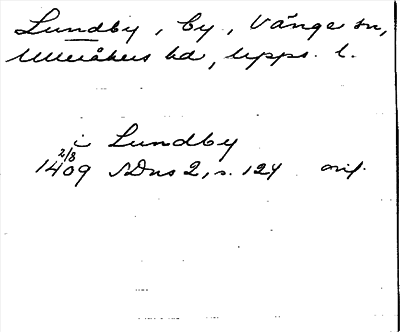 Lundby, by, Vänge sn,
Ulleråkers hd, Upps. l.
i Lundby
2/8
1409 SDns 2, s. 124 orig.